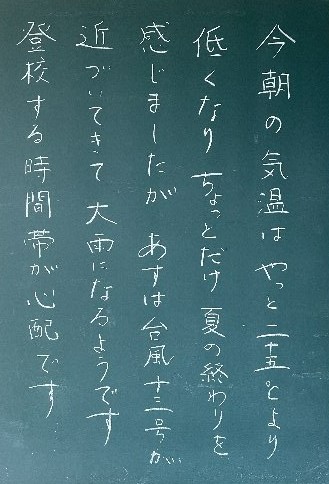 今朝の気温は やっと二十五°とより
低くなり ちょっとだけ 夏の終わりを
感じましたが あすは台風十三号が、
近づいてきて 大雨になるようです
登校する時間帯が心配です